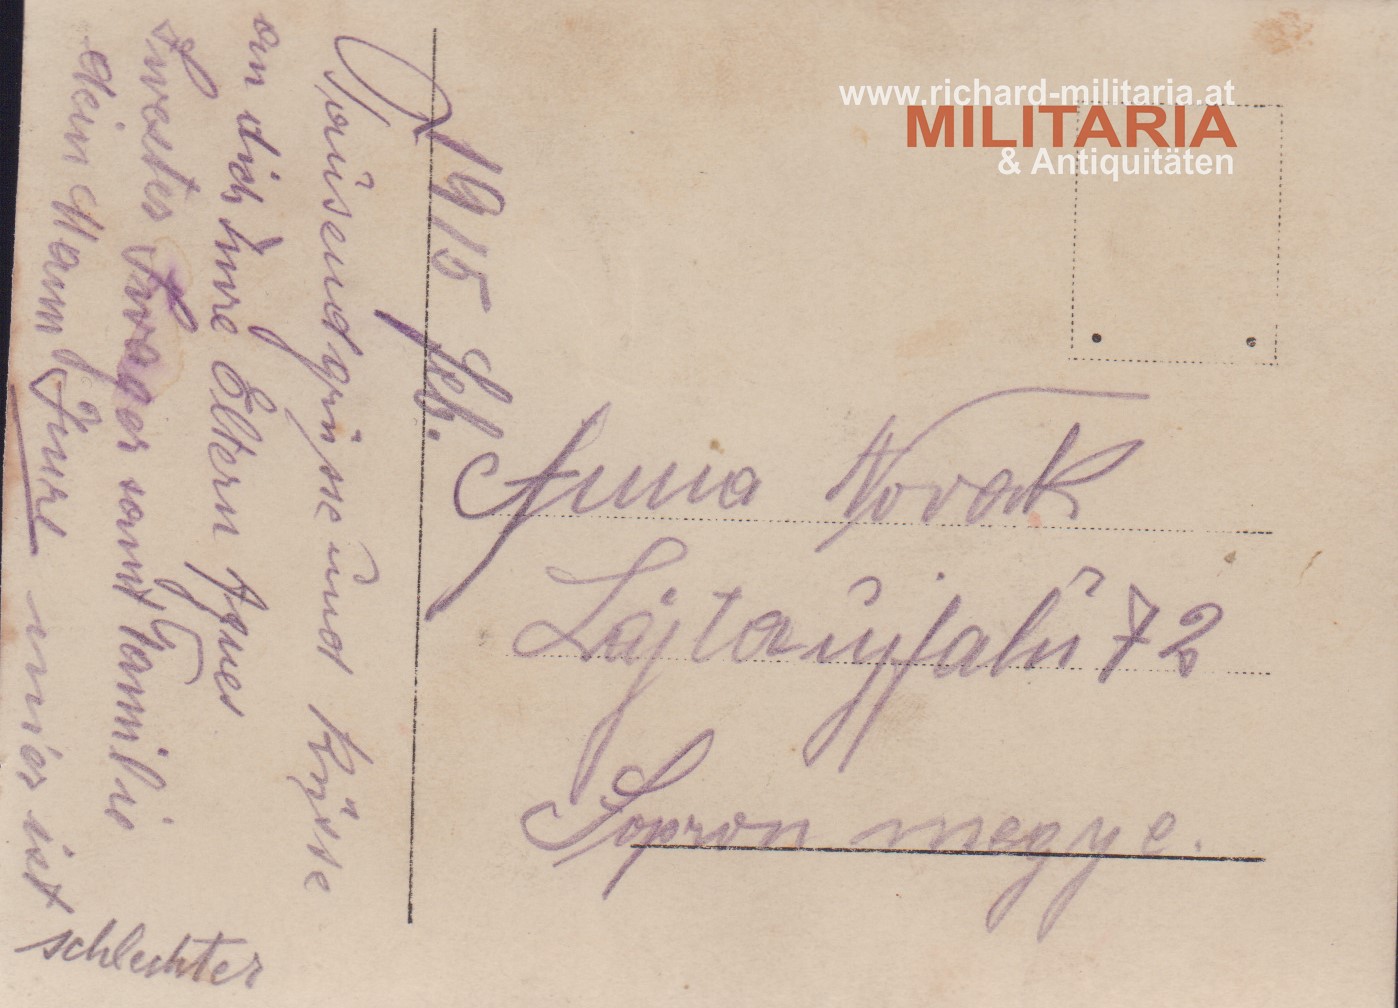 www.richard-militaria.at
MILITARIA
& Antiquitäten
1915 Feb.
Tausend grüsse und Küsse
an dich Eltern Agnes
samt Familie
dein Mann
ist
schlechter
Anna Novak
Lajtaujfalú 72
Sopron megye.